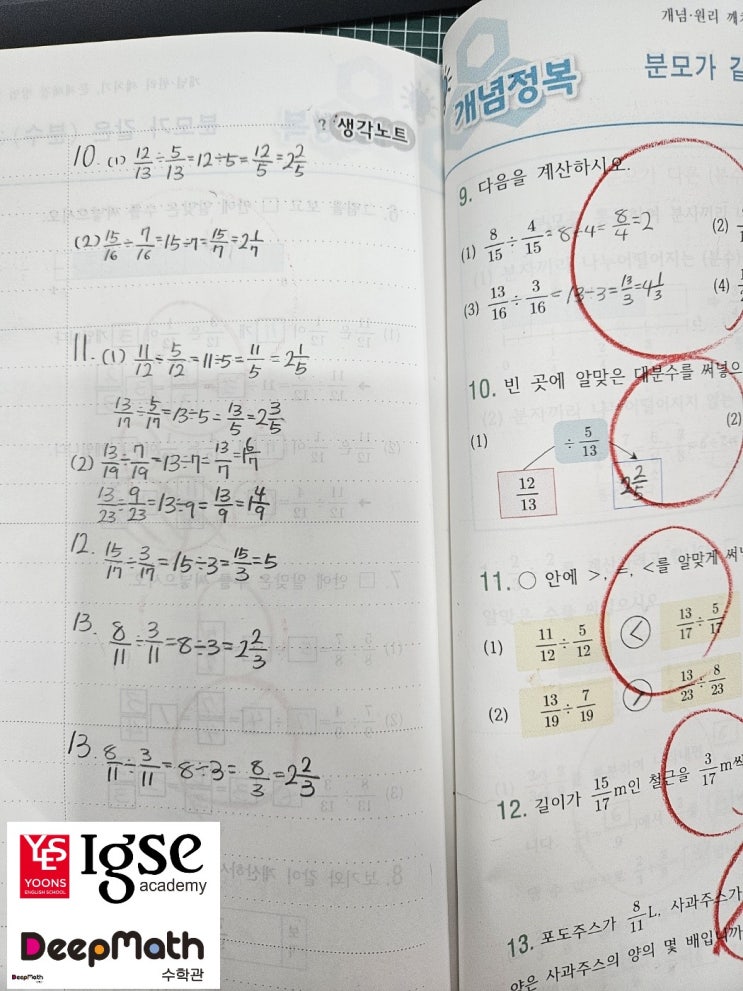 개념·원리
? 생각노트
10. (1) 12/13 ÷ 5/13 = 12÷5 = 12/5 = 2 2/5
(2) 15/16 ÷ 7/16 = 15÷7 = 15/7 = 2 1/7
11. (1) 11/12 ÷ 5/12 = 11÷5 = 11/5 = 2 1/5
13/17 ÷ 5/17 = 13÷5 = 13/5 = 2 3/5
(2) 13/19 ÷ 7/19 = 13÷7 = 13/7 = 1 6/7
13/23 ÷ 9/23 = 13÷9 = 13/9 = 1 4/9
12. 15/17 ÷ 3/17 = 15÷3 = 15/3 = 5
13. 8/11 ÷ 3/11 = 8÷3 = 2 2/3
13. 8/11 ÷ 3/11 = 8÷3 = 8/3 = 2 2/3
YES
YOONS
ENGLISH SCHOOL
Igse
academy
DeepMath
수학관
DeepMath
개념정복
분모가
9. 다음을 계산하시오.
(1) 8/15 ÷ 4/15 = 8÷4 = 8/4 = 2
(2)
(3) 13/16 ÷ 3/16 = 13÷3 = 13/3 = 4 1/3
(4)
10. 빈 곳에 알맞은 대분수를 써넣으
(1)
÷ 5/13
(2)
12/13
2 2/5
11. ○ 안에 >, =, <를 알맞게 써
(1) 11/12 ÷ 5/12 < 13/17 ÷ 5/17
(2) 13/19 ÷ 7/19 > 13/23 ÷ 8/23
12. 길이가 15/17 m인 철근을 3/17 m씩
13. 포도주스가 8/11 L, 사과주스가
양은 사과주스의 양의 몇 배입니까